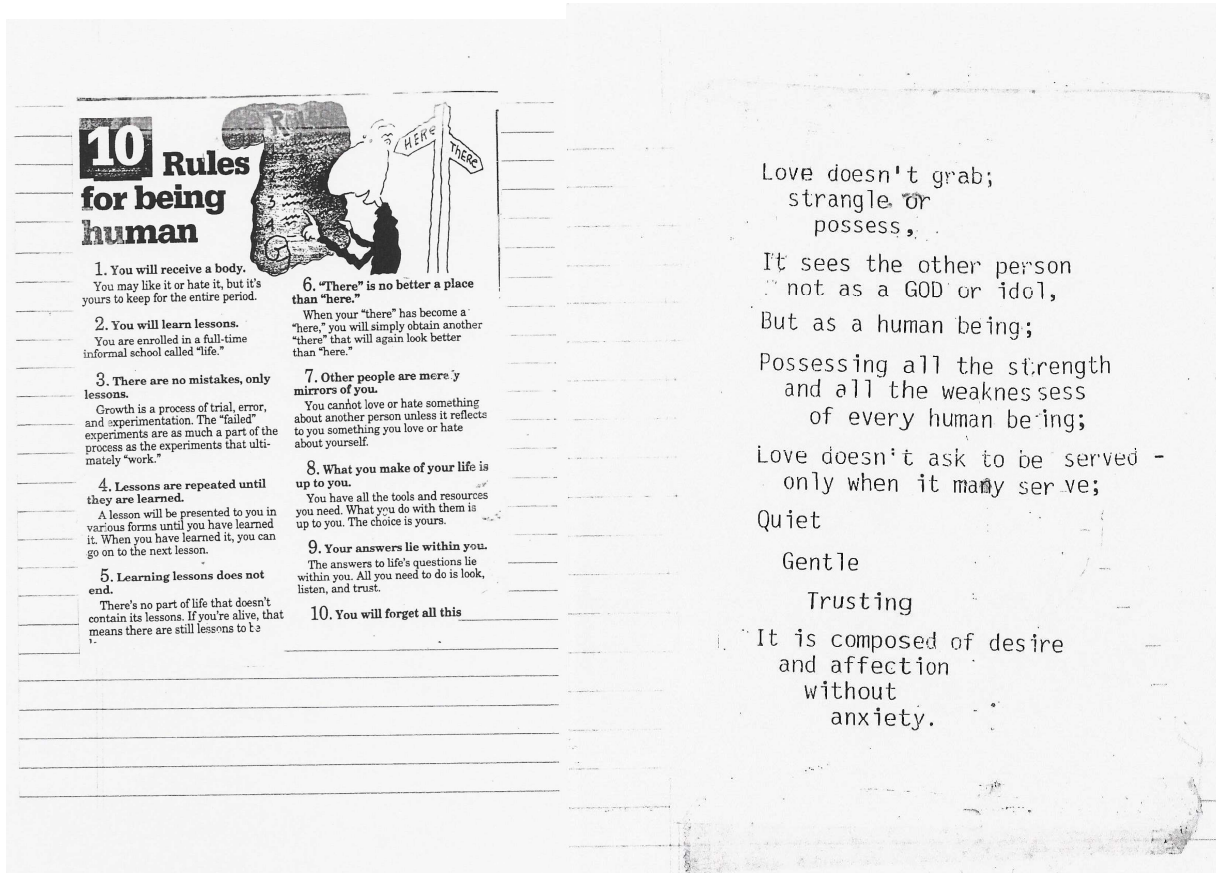 10 Rules
for being
human
RULES
HERE
THERE
3
4
1. You will receive a body.
You may like it or hate it, but it's
yours to keep for the entire period.
2. You will learn lessons.
You are enrolled in a full-time
informal school called "life."
3. There are no mistakes, only
lessons.
Growth is a process of trial, error,
and experimentation. The "failed"
experiments are as much a part of the
process as the experiments that ulti-
mately "work."
4. Lessons are repeated until
they are learned.
A lesson will be presented to you in
various forms until you have learned
it. When you have learned it, you can
go on to the next lesson.
5. Learning lessons does not
end.
There's no part of life that doesn't
contain its lessons. If you're alive, that
means there are still lessons to be
6. "There" is no better a place
than "here."
When your "there" has become a
"here," you will simply obtain another
"there" that will again look better
than "here."
7. Other people are merely
mirrors of you.
You cannot love or hate something
about another person unless it reflects
to you something you love or hate
about yourself.
8. What you make of your life is
up to you.
You have all the tools and resources
you need. What you do with them is
up to you. The choice is yours.
9. Your answers lie within you.
The answers to life's questions lie
within you. All you need to do is look,
listen, and trust.
10. You will forget all this
Love doesn't grab;
strangle or
possess,
It sees the other person
not as a GOD or idol,
But as a human being;
Possessing all the strength
and all the weaknessess
of every human being;
Love doesn't ask to be served -
only when it many serve;
Quiet
Gentle
Trusting
It is composed of desire
and affection
without
anxiety.